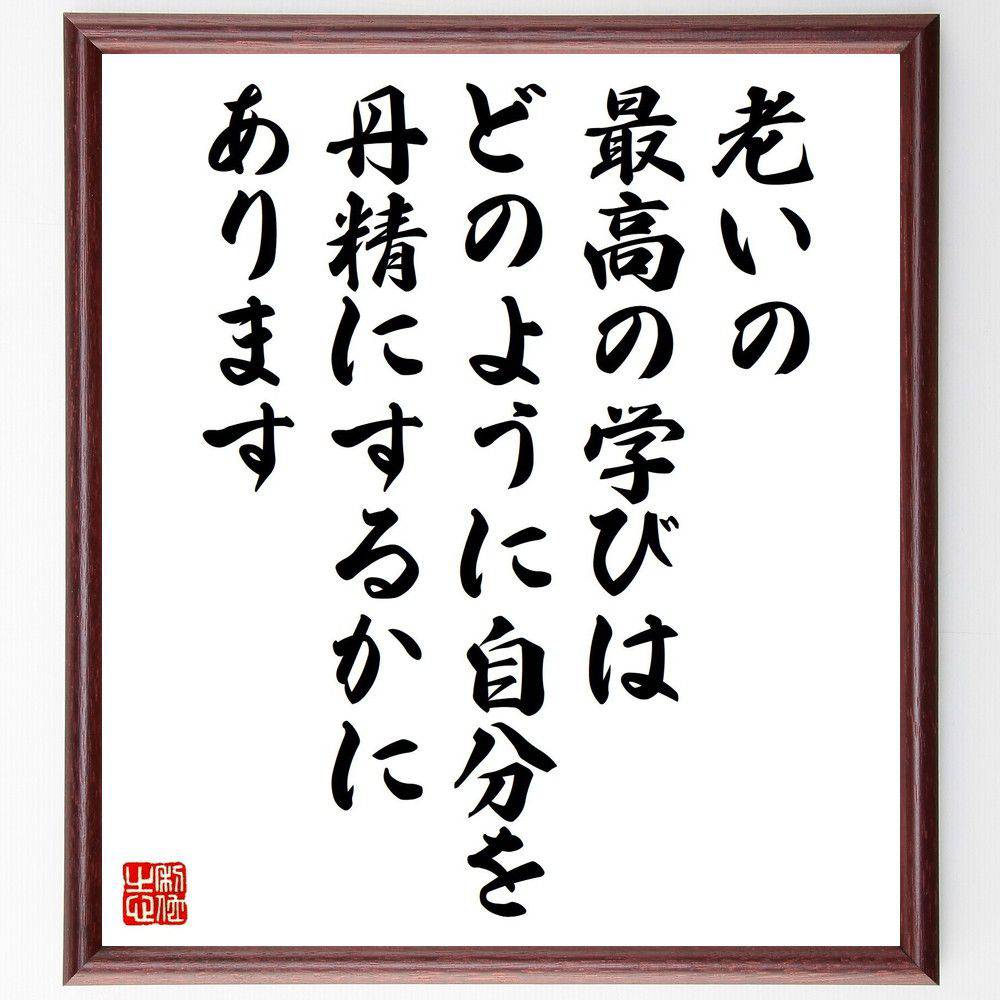 老いの
最高の学びは
どのように自分を
丹精にするかに
あります